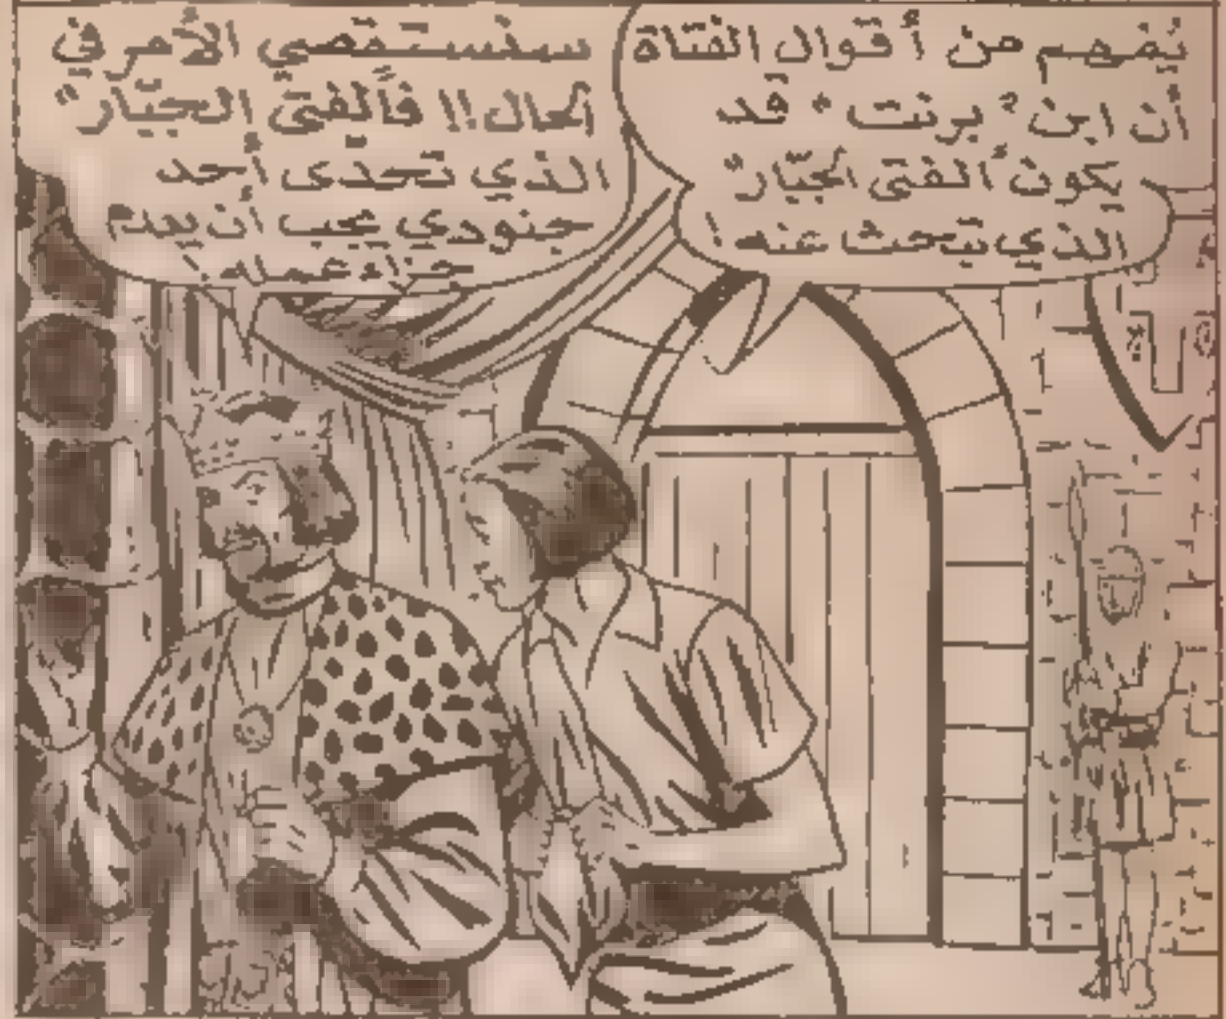 يُفهم من أقوال الفتاة
أن ابن "برنت" قد
يكون "الفتى الجبّار"
الذي نبحث عنه!
سنستقصي الأمر في
الحال!! فالفتى الجبّار"
الذي تحدى أحد
جنودي يجب أن يعدم
جزاء عمله!